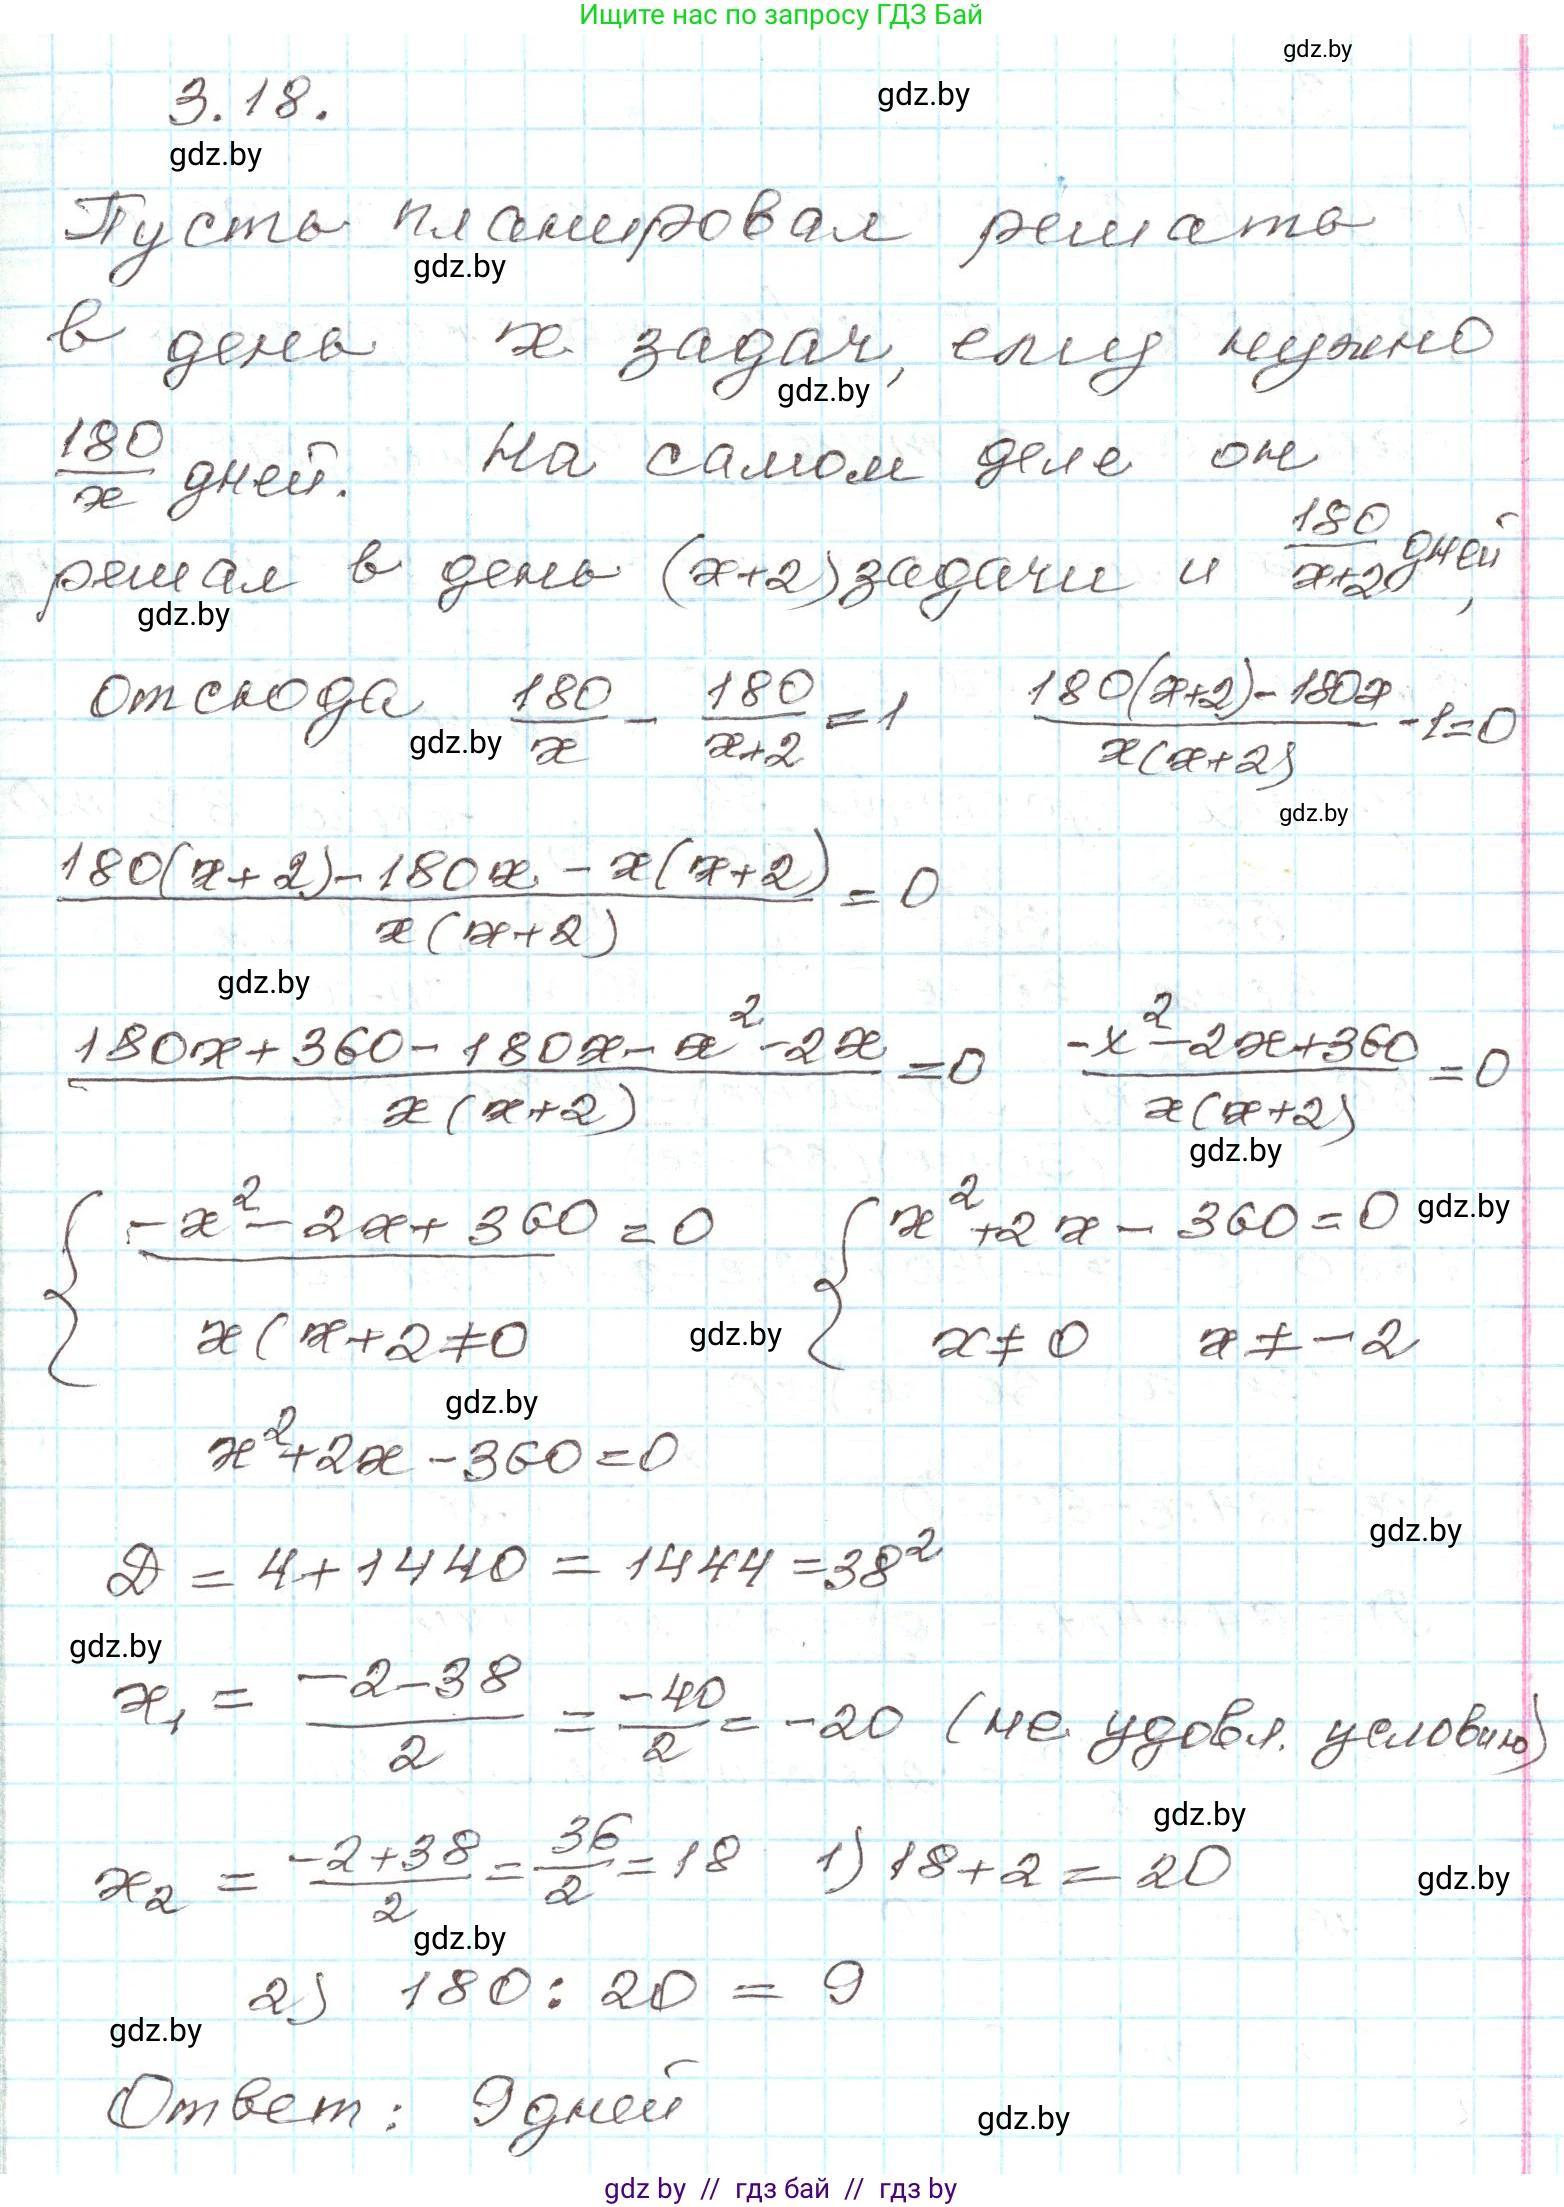 Ищите нас по запросу ГДЗ Бай
gdz.by
3.18.
gdz.by
gdz.by
Пусть планировал решать
gdz.by
в день x задач, ему нужно
gdz.by
180/x дней. На самом деле он
решал в день (x+2) задачи и 180/(x+2) дней,
gdz.by
Отсюда 180/x - 180/(x+2) = 1 (180(x+2)-180x)/(x(x+2)) - 1 = 0
gdz.by
gdz.by
(180(x+2)-180x-x(x+2))/(x(x+2)) = 0
gdz.by
(180x+360-180x-x²-2x)/(x(x+2)) = 0 (-x²-2x+360)/(x(x+2)) = 0
gdz.by
{ -x²-2x+360=0 { x²+2x-360=0 gdz.by
x(x+2≠0 gdz.by x≠0 x≠-2
gdz.by
x²+2x-360=0
gdz.by
D = 4+1440 = 1444 = 38²
gdz.by
x₁ = (-2-38)/2 = -40/2 = -20 (не удовл. условию)
gdz.by
x₂ = (-2+38)/2 = 36/2 = 18 1) 18+2=20 gdz.by
gdz.by
2) 180:20 = 9
gdz.by
Ответ: 9 дней
gdz.by
gdz by // гдз бай // гдз by